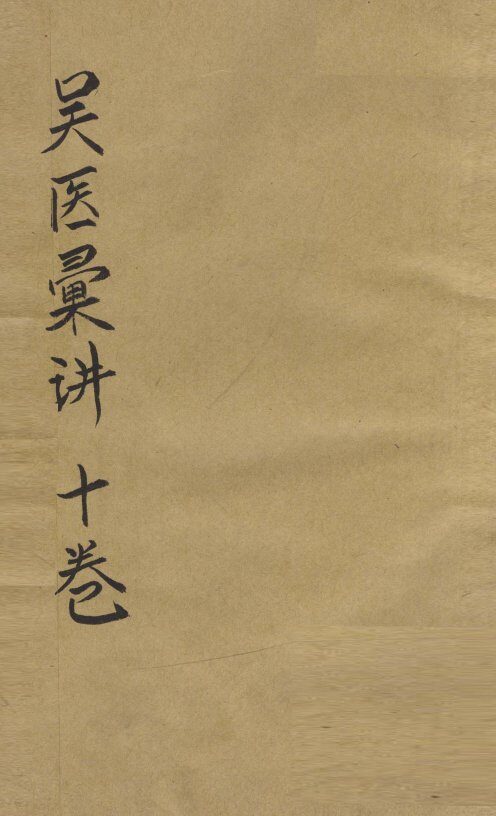 吴医彙讲 十巻